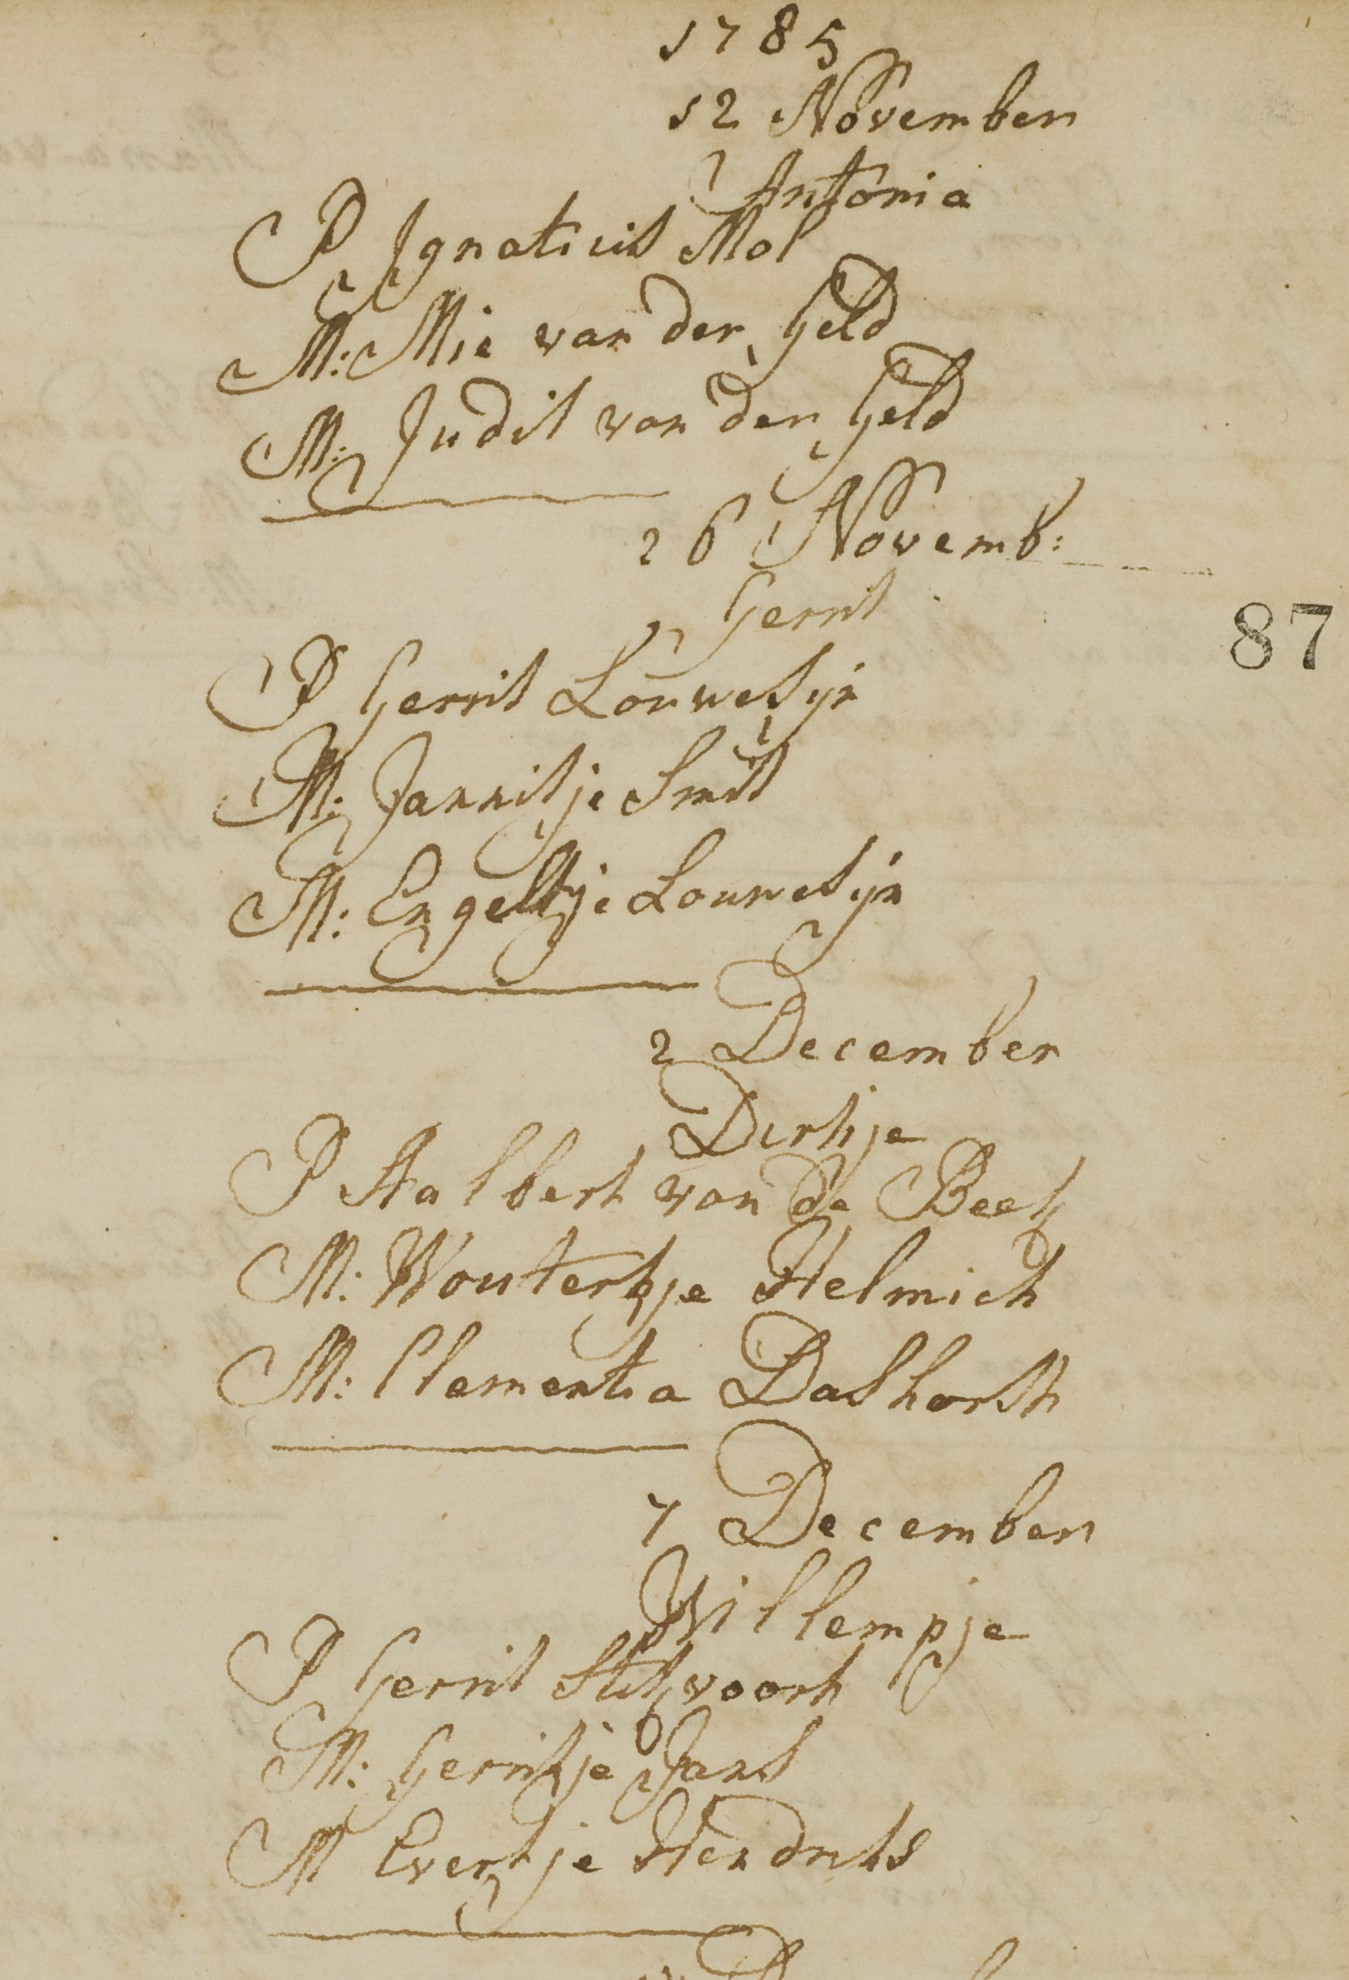 1785
12 November
Antonia
P Ignatius Mol
M: Mie van der Geld
M: Judit van der Geld
26 Novemb:
Gerrit
87
P Gerrit Louwesijn
M: Jannitje Smit
M: Engeltje Louwesijn
2 December
Dirkje
P Aalbert van de Beek
M: Woutertje Helmich
M: Clementia Dashorst
7 December
Willempje
P Gerrit Stitvoort
M: Gerritje Jans
M Evertje Hendriks